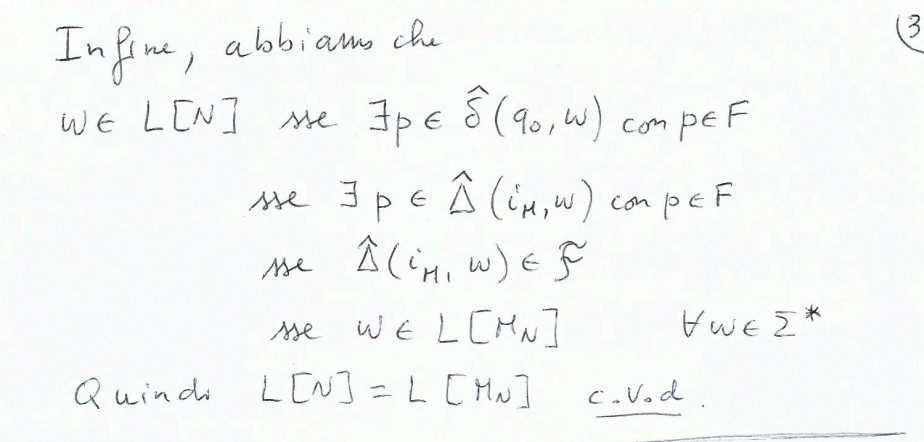 (3
Infine, abbiamo che
w ∈ L[N] sse ∃p ∈ δ̂(q₀, w) con p ∈ F
sse ∃ p ∈ Δ̂(i_M, w) con p ∈ F
sse Δ̂(i_M, w) ∈ F̃
sse w ∈ L[M_N] ∀w ∈ Σ*
Quindi L[N] = L[M_N] c.v.d.